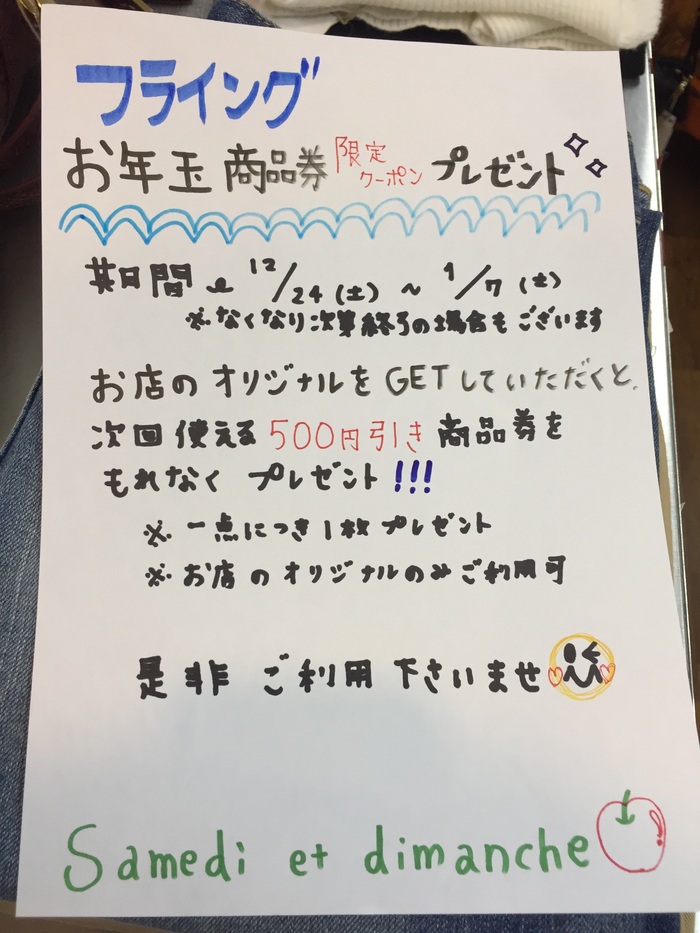 フライング
お年玉商品券 限定クーポン プレゼント
期間 12/24(土)~1/7(土)
※なくなり次第終了の場合もございます
お店のオリジナルをGETしていただくと、
次回使える500円引き商品券を
もれなくプレゼント!!!
※一点につき1枚プレゼント
※お店のオリジナルのみご利用可
是非ご利用下さいませ
Samedi et dimanche